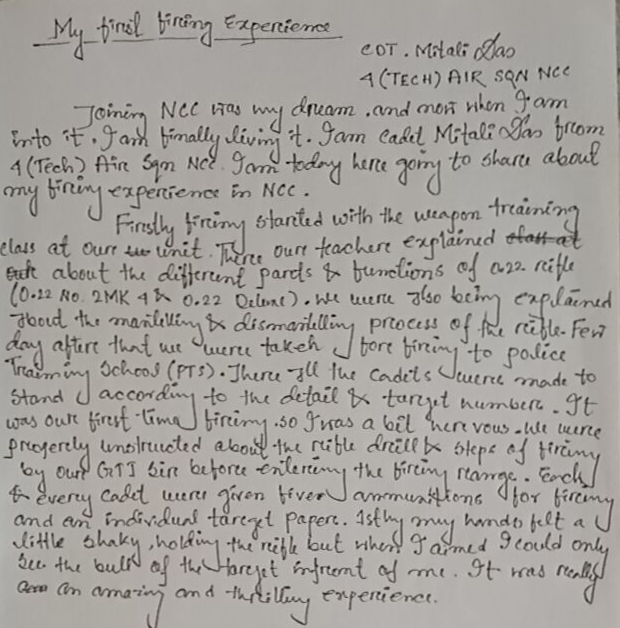 My first firing Experience
CDT. Mitali Das
4 (TECH) AIR SQN NCC
Joining NCC was my dream. and now when I am
into it. I am finally living it. I am cadet Mitali Das from
4 (Tech) Air Sqn NCC. I am today here going to share about
my firing experience in NCC.
Firstly firing started with the weapon treaining
class at oure unit. There oure teachere explained class at
about the different parts & functions of 0.22 reifle
(0.22 No. 2MK 4 & 0.22 Deluxe). We were also being explained
about the mantelling & dismantelling process of the reifle. Few
day aftere that we were taken fore firing to police
Training School (PTS). There all the cadets were made to
stand according to the detail & target numbere. It
was oure first time firing. so I was a bit nervous. We were
properely instructed about the reifle drill & steps of firing
by oure GTI sire before entering the firing reange. Each
& every cadet were given five ammunitions for firing
and an individual target papere. 1stly my hands felt a
little shaky, holding the reifle but when I aimed I could only
see the bull of the target infront of me. It was really
an amazing and thrilling experience.